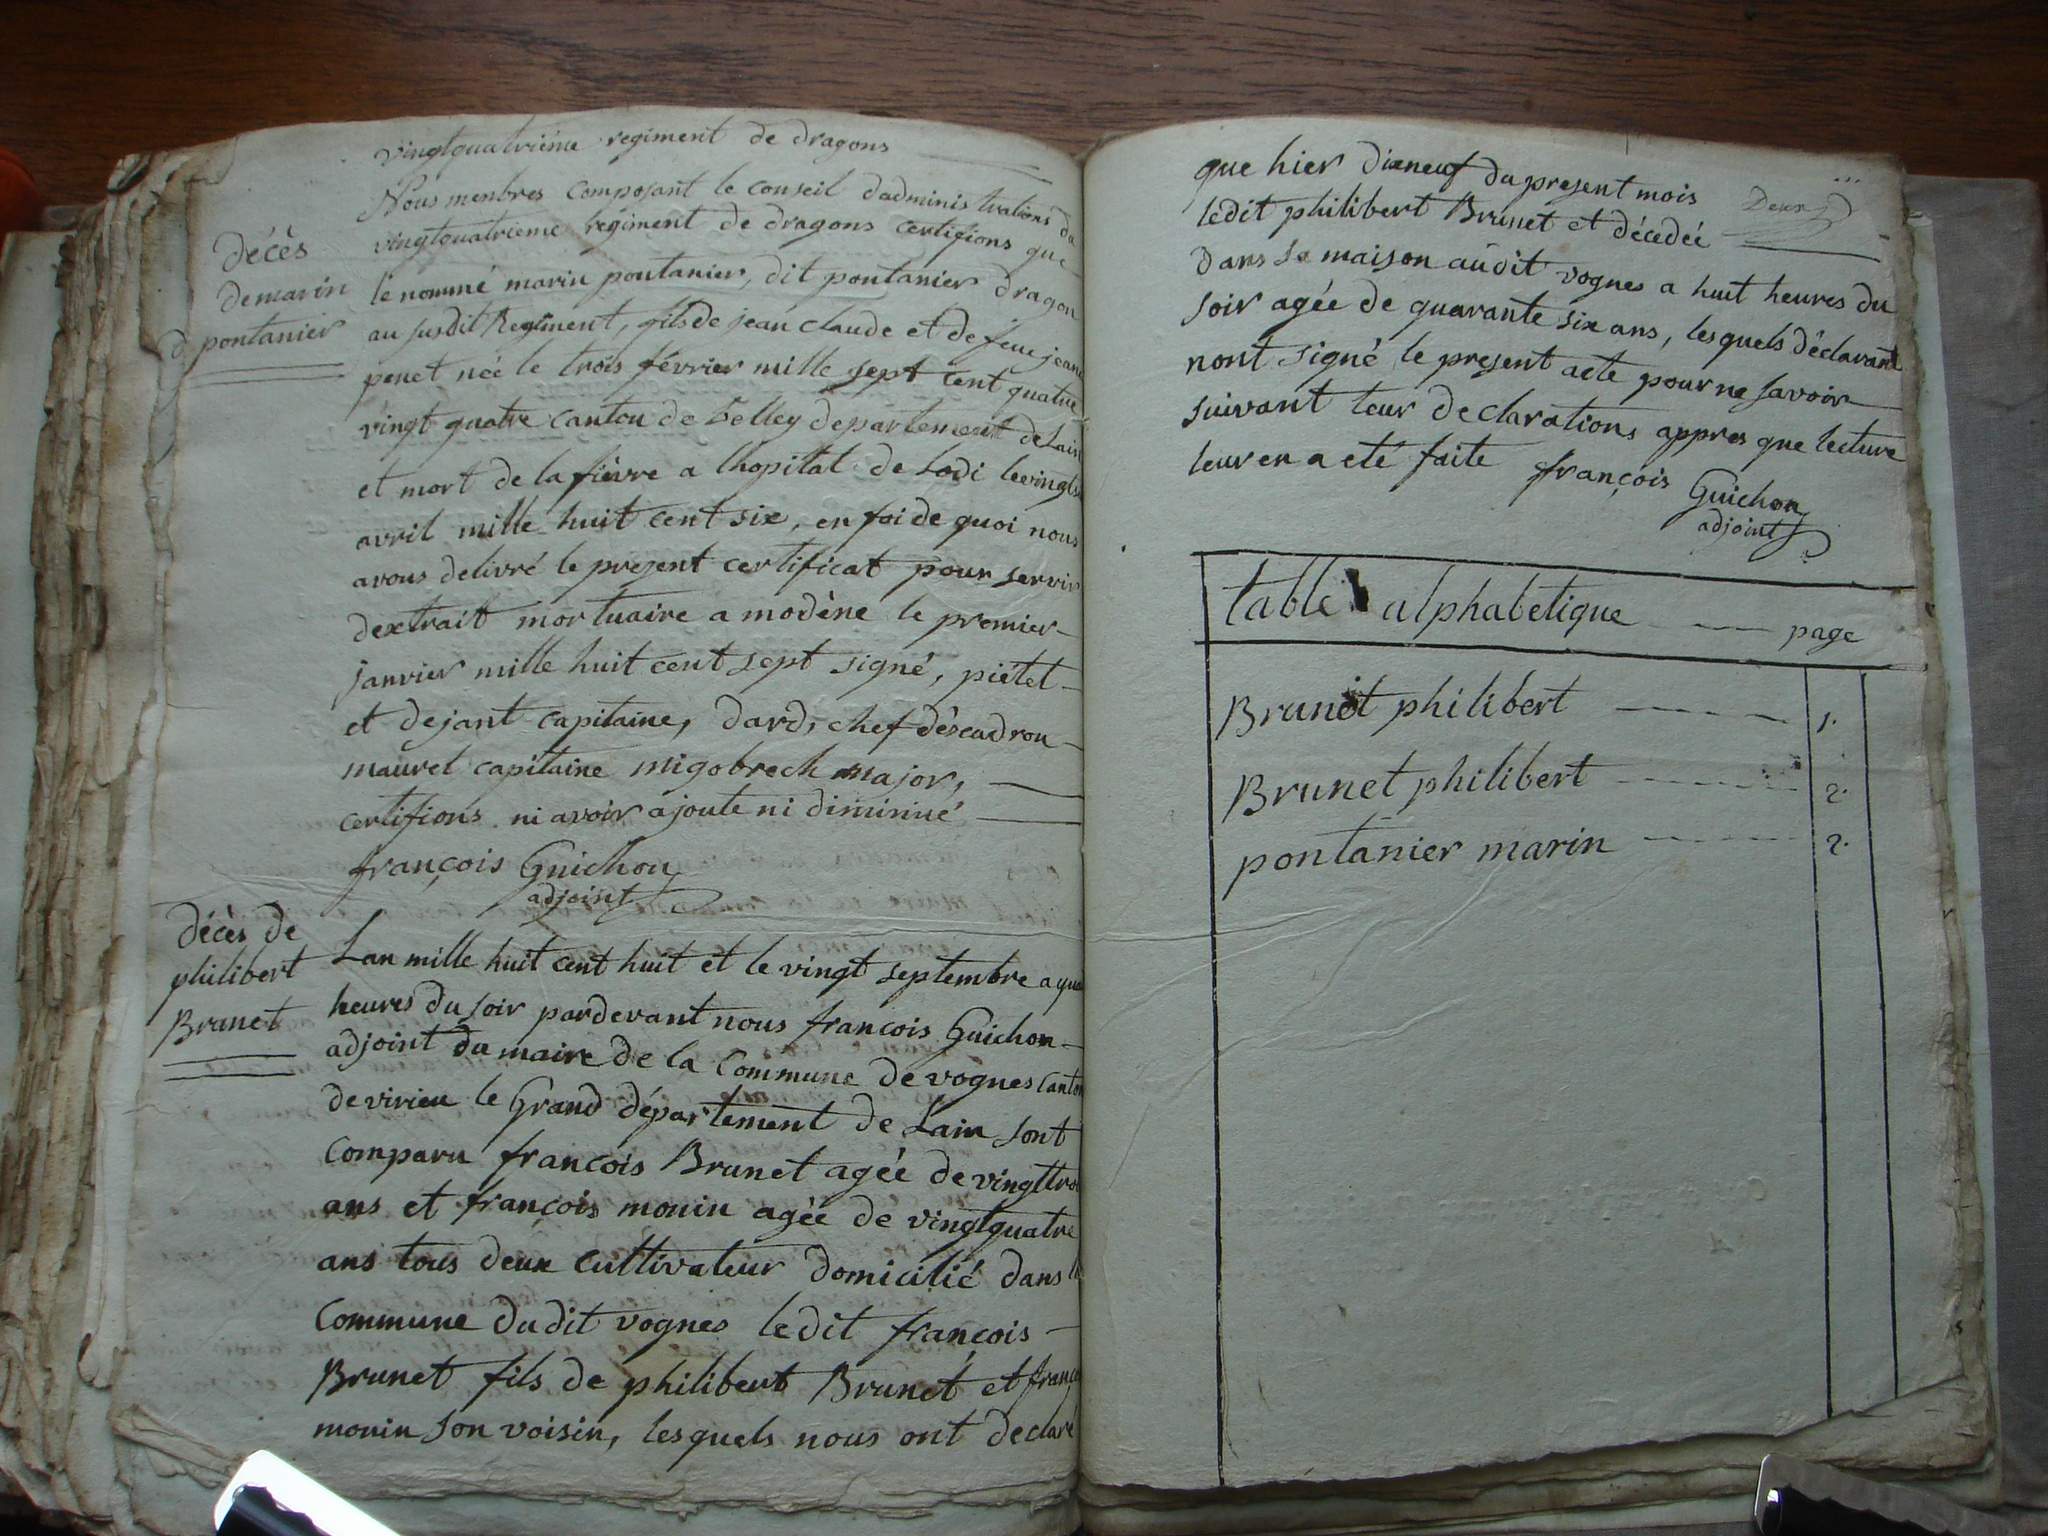 vingtquatriéme regiment de dragons
Nous menbres composant le conseil dadministrations du
vingtquatrieme régiment de dragons certifions que
le nommé marin pontanier, dit pontanier dragon
au susdit Regiment, fils de jean claude et de feue jeane
penet née le trois février mille sept cent quatre
vingt quatre canton de belley departement de Lain
et mort de la fièvre a lhopital de Lodi le vingt
avril mille huit cent six, en foi de quoi nous
avons delivré le present certificat pour servir
dextrait mortuaire a modène le premier
janvier mille huit cent sept signé, pietet
et dejant capitaine, dard, chef déscadron
maurel capitaine migobrech major,
certifions ni avoir ajoute ni diminué
françois Guichon
adjoint
décès
de marin
d. pontanier
décès de
philibert
Brunet
Lan mille huit cent huit et le vingt septembre a
heures du soir pardevant nous françois Guichon
adjoint du maire de la Commune de vognes Canton
de virieu le Grand département de Lain sont
comparu françois Brunet agée de vingttrois
ans et françois monin agée de vingtquatre
ans tous deux cultivateur domicilié dans la
Commune dudit vognes ledit françois
Brunet fils de philibert Brunet et françois
monin son voisin, lesquels nous ont declaré
que hier dixneuf du present mois
ledit philibert Brunet et décedée
Deux
dans sa maison audit vognes a huit heures du
soir agée de quarante six ans, lesquels déclarant
nont signé le present acte pour ne savoir
suivant leur declarations appres que lecture
leur en a eté faite françois Guichon
adjoint
table alphabetique page
Brunet philibert 1.
Brunet philibert 2.
pontanier marin 2.